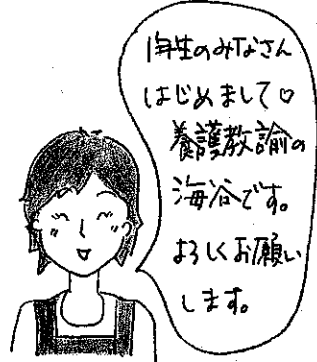 1年生のみなさん
はじめまして♡
養護教諭の
海谷です。
よろしくお願い
します。